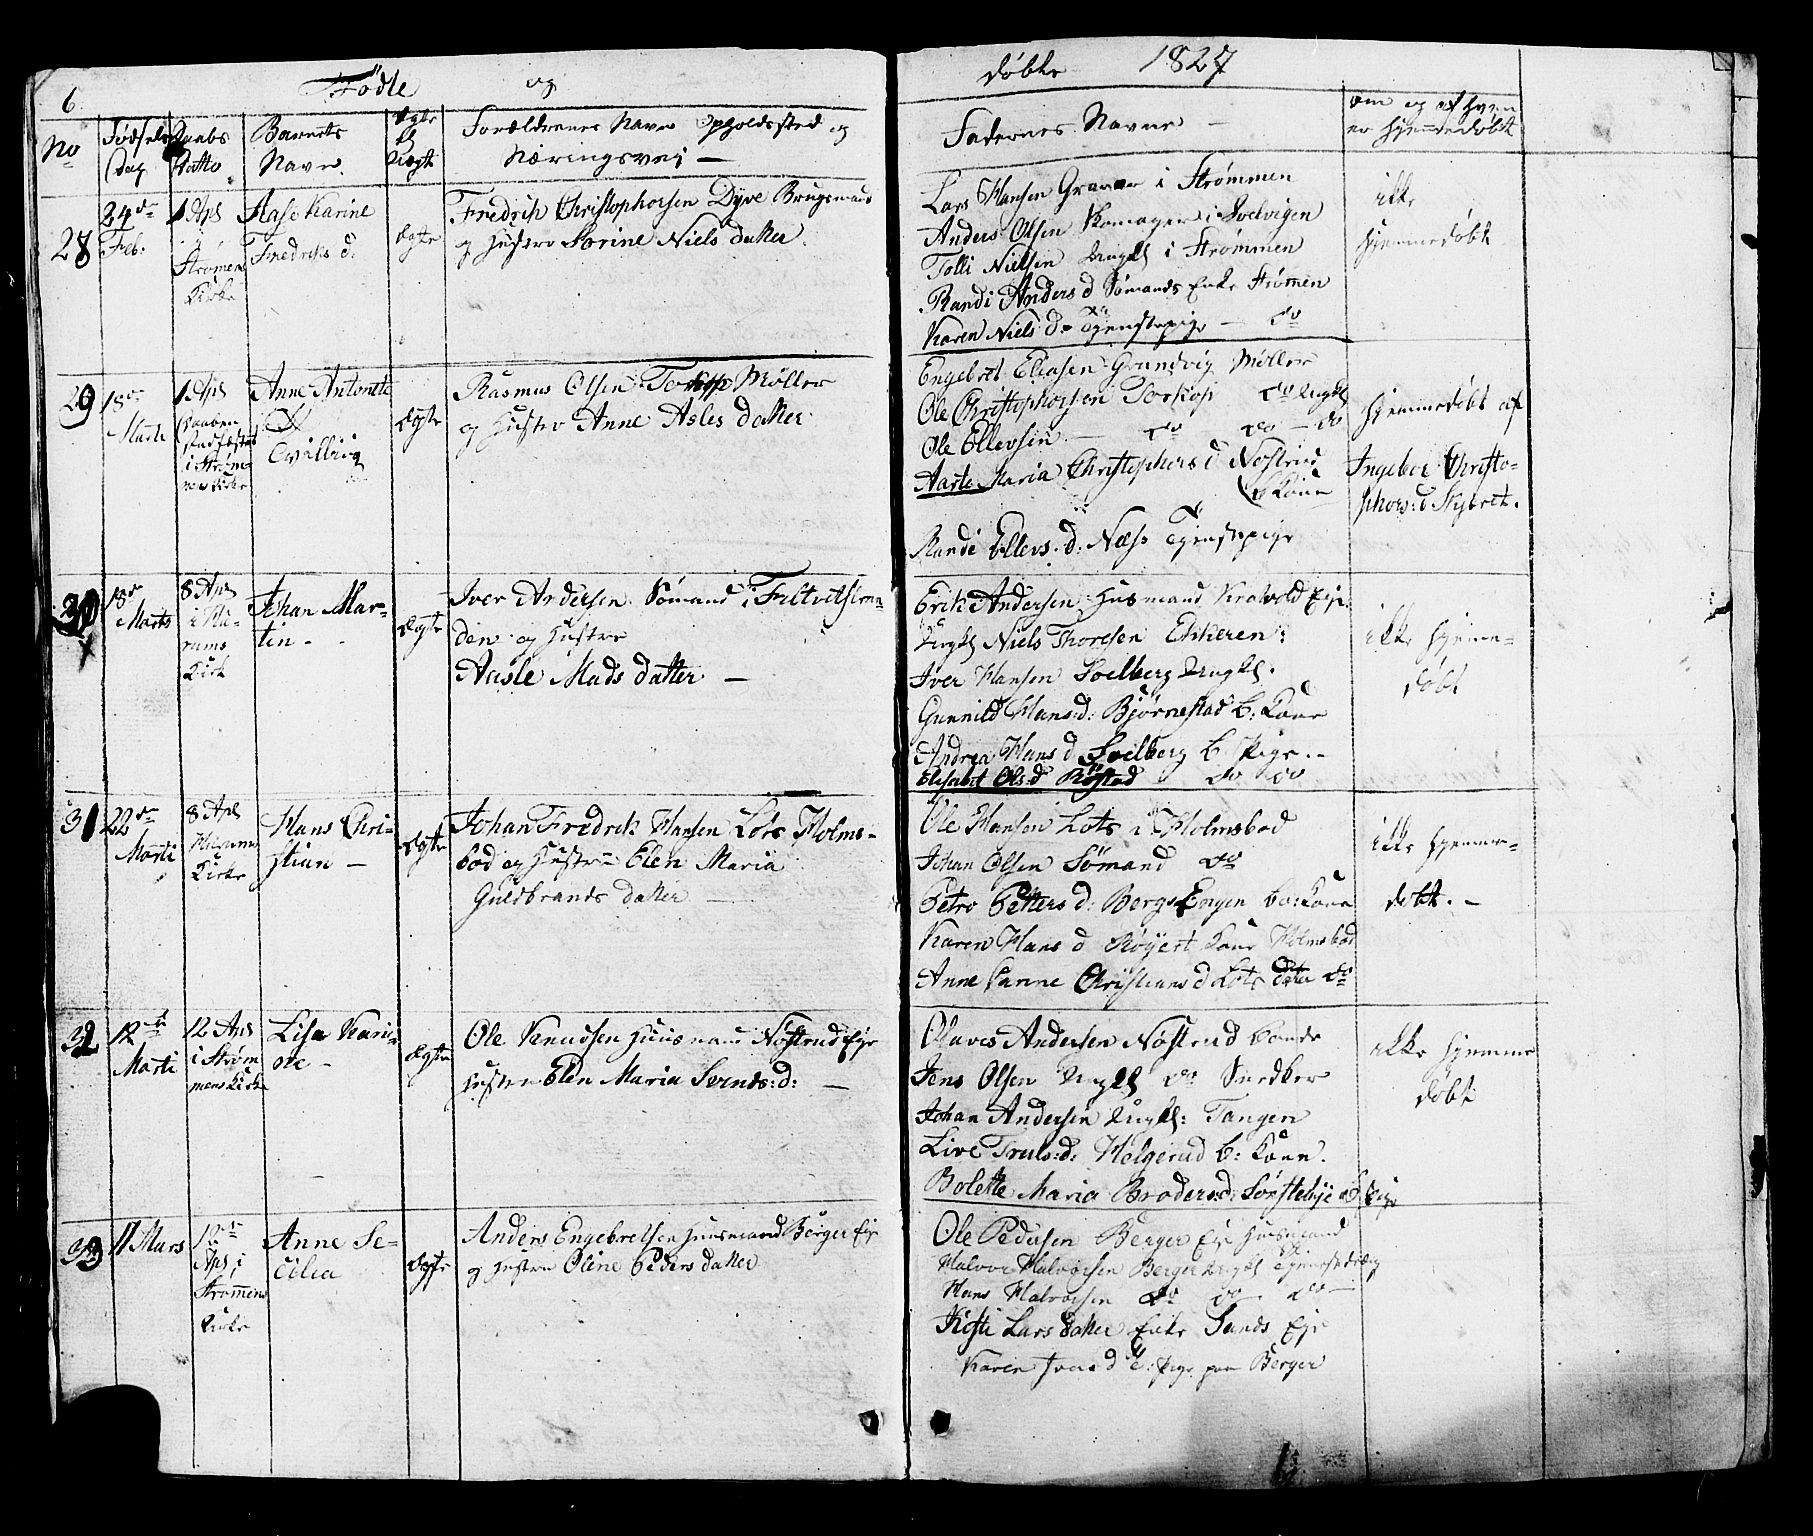 6
Födte
og
døbte 1827
No
Fødsels
Dag.
Daabs
Datto
Barnets
Navn.
Ægte
Uægte
Forældrenes Navn Opholdssted og
Næringsvei —
Fadernes Navne —
om og af hvem
er hjemmedøbt
28
24de
Feb.
1 Apl
Strømens
Kirke
Aase Karine
Fredriks d.
Ægte
Fredrik Christophersen Dyve Brugsmand
og Hustro Sorine Niels datter.
Lars Hansen Graver i Strømmen
Anders Olsen Skomager i Svelvigen
Tolli Nielsen Ungkl i Strømmen
Randi Anders d Sømands Enke Strømen
Karen Niels d. Tjenstepige — do
ikke
hjemmedøbt
29
18de
Marti
1 Apl
Daaben
stadfæstet
i Strøm-
mens Kirke
Anne Antonette
Tvilling
Ægte
Rasmus Olsen Torkop Møller
og Hustro Anne Asles datter
Engebret Eliasen Grundvig Møller
Ole Christophersen Torkop do Ungkl
Ole Ellevsen — do do — do
Aaste Maria Christophers d Nøstrud
b Kone
Randi Ellevs. d: Næss Tjenstepige
hjemmedøbt af
Ingebor Christo-
phers: d Nybret.
30
18de
Marts
8 Apl
i Hu-
rums
Kirk
Johan Mar-
tin —
Ægte
Iver Andersen Sømand i Filtvetstran-
den og Hustro
Aasle Mads datter —
Erik Andersen Husmand Kraavold Eje.
Ungkl Niels Thoresen Ekkeren:
Iver Hansen Soelberg Ungkl.
Gunnild Hans:d: Bjørnestad b: Kone
Andrea Hans d Soelberg b Pige. —
Elisabet Ols:d Røstad do do
ikke hjemme-
døbt
31
22de
Marti
8 Apl
Hurums
Kirke
Hans Chri-
stian —
Ægte
Johan Fredrik Hansen Lots Holms-
bod og Hustro Elen Maria
Guldbrands datter —
Ole Hansen Lots i Holmsbod
Johan Olsen Sømand do
Petro Petters d: Bergs Engen bo: Kone
Karen Hans d Røyert Kone Holmsbod
Anne Karine Christians d Lots datter do
ikke hjemme-
døbt. —
32
12te
Marti
12 Apl
i Strøm
mens Kirke
Lisa Kari-
ne —
Ægte
Ole Knudsen Huusmand Nøstrud Eje
Hustro Elen Maria Sernds:d: —
Olaves Andersen Nøstrud Bonde
Jens Olsen Ungkl do Snedker
Johan Andersen Ungkl: Tangen
Live Truls:d: Helgerud b: Kone.
Bolette Maria Broders:d: Sørstebye Pige
ikke hjemme
døbt
33
11 Mars
12te
Apl i
Strømmens
Kirke
Anne Se-
cilia
Ægte
Anders Engebretsen Huusmand Berger Eje
og Hustro Oline Peders datter
Ole Pedersen Berger Eje Husmand
Halvor Halvorsen Berger Ungkl Tjenestedræng
Hans Halvorsen do do do —
Kisti Lars datter Enke Sands Eje
Karen Ivers d E: Pige paa Berger